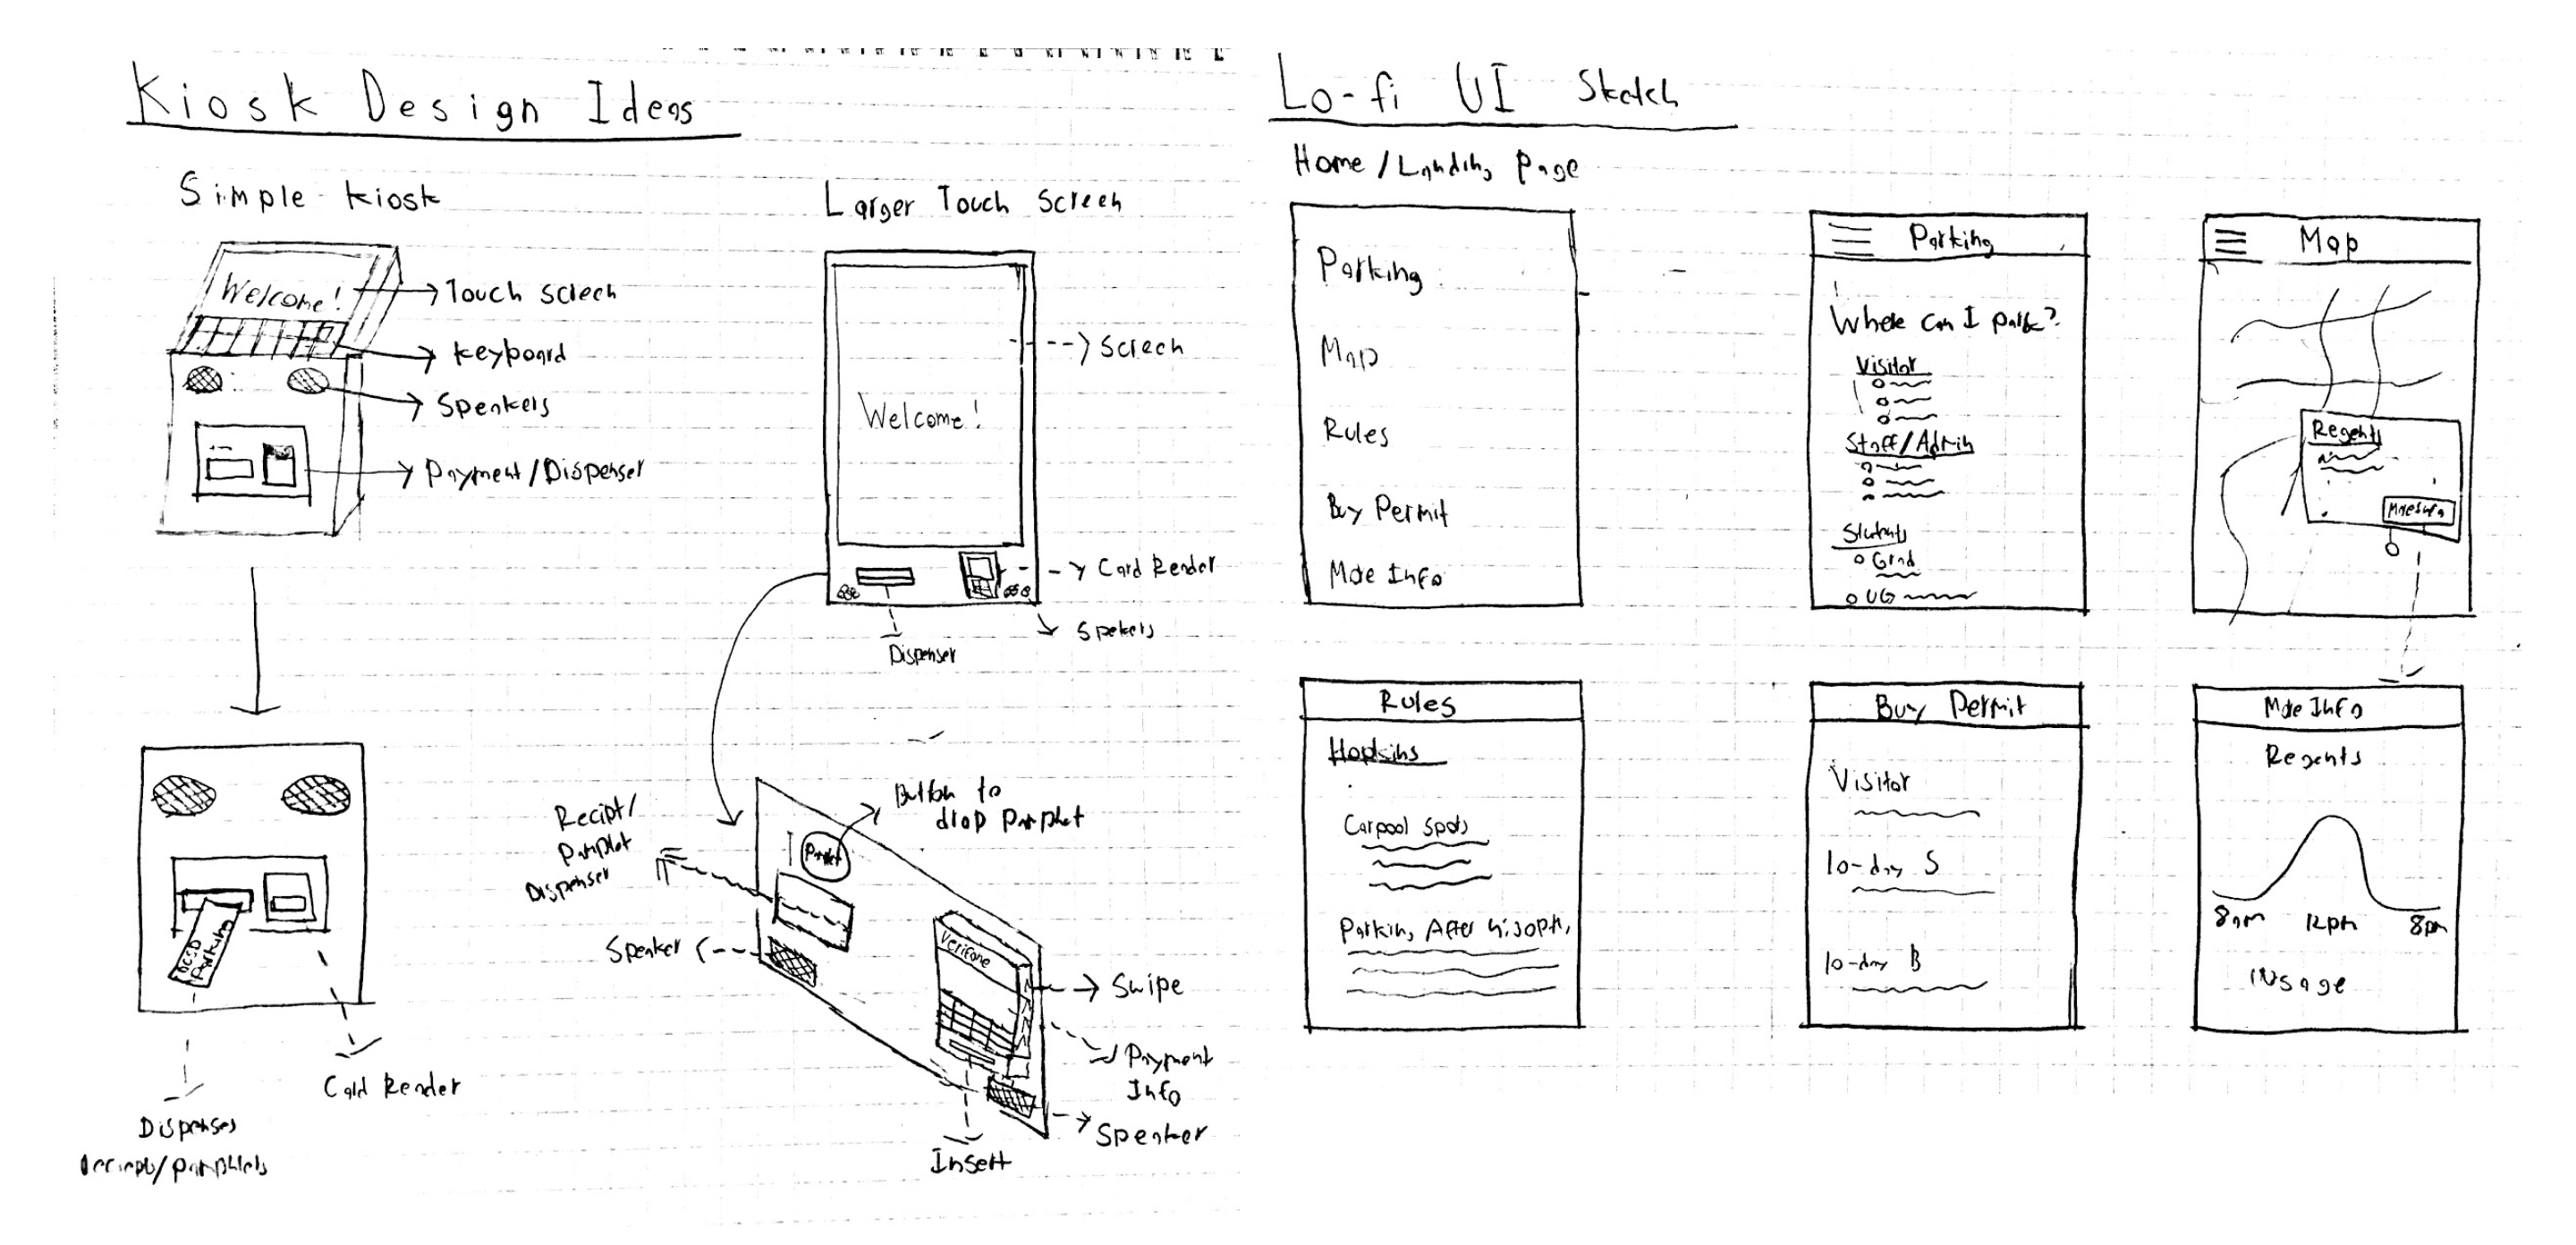 Kiosk Design Ideas
Simple-kiosk
Welcome!
Touch screen
keyboard
Speakers
Payment/Dispenser
UCSD
Parking
Card Reader
Dispenses
reciepts/pamphlets
Larger Touch Screen
Welcome!
Screen
Card Reader
Spekers
Dispenser
Button to
drop pamphlet
Recipt/
Pamphlet
Dispenser
Speaker
Verifone
Swipe
Payment
Info
Speaker
Insert
Lo-fi UI Sketch
Home/Landing page
Parking
Map
Rules
Buy Permit
More Info
Parking
Where can I park?
Visitor
Staff/Admin
Students
Grad
UG
Map
Regents
More Info
Rules
Hopkins
Carpool Spots
Parking After 4:30pm
Buy Permit
Visitor
10-day S
10-day B
More Info
Regents
8am 12pm 8pm
Usage